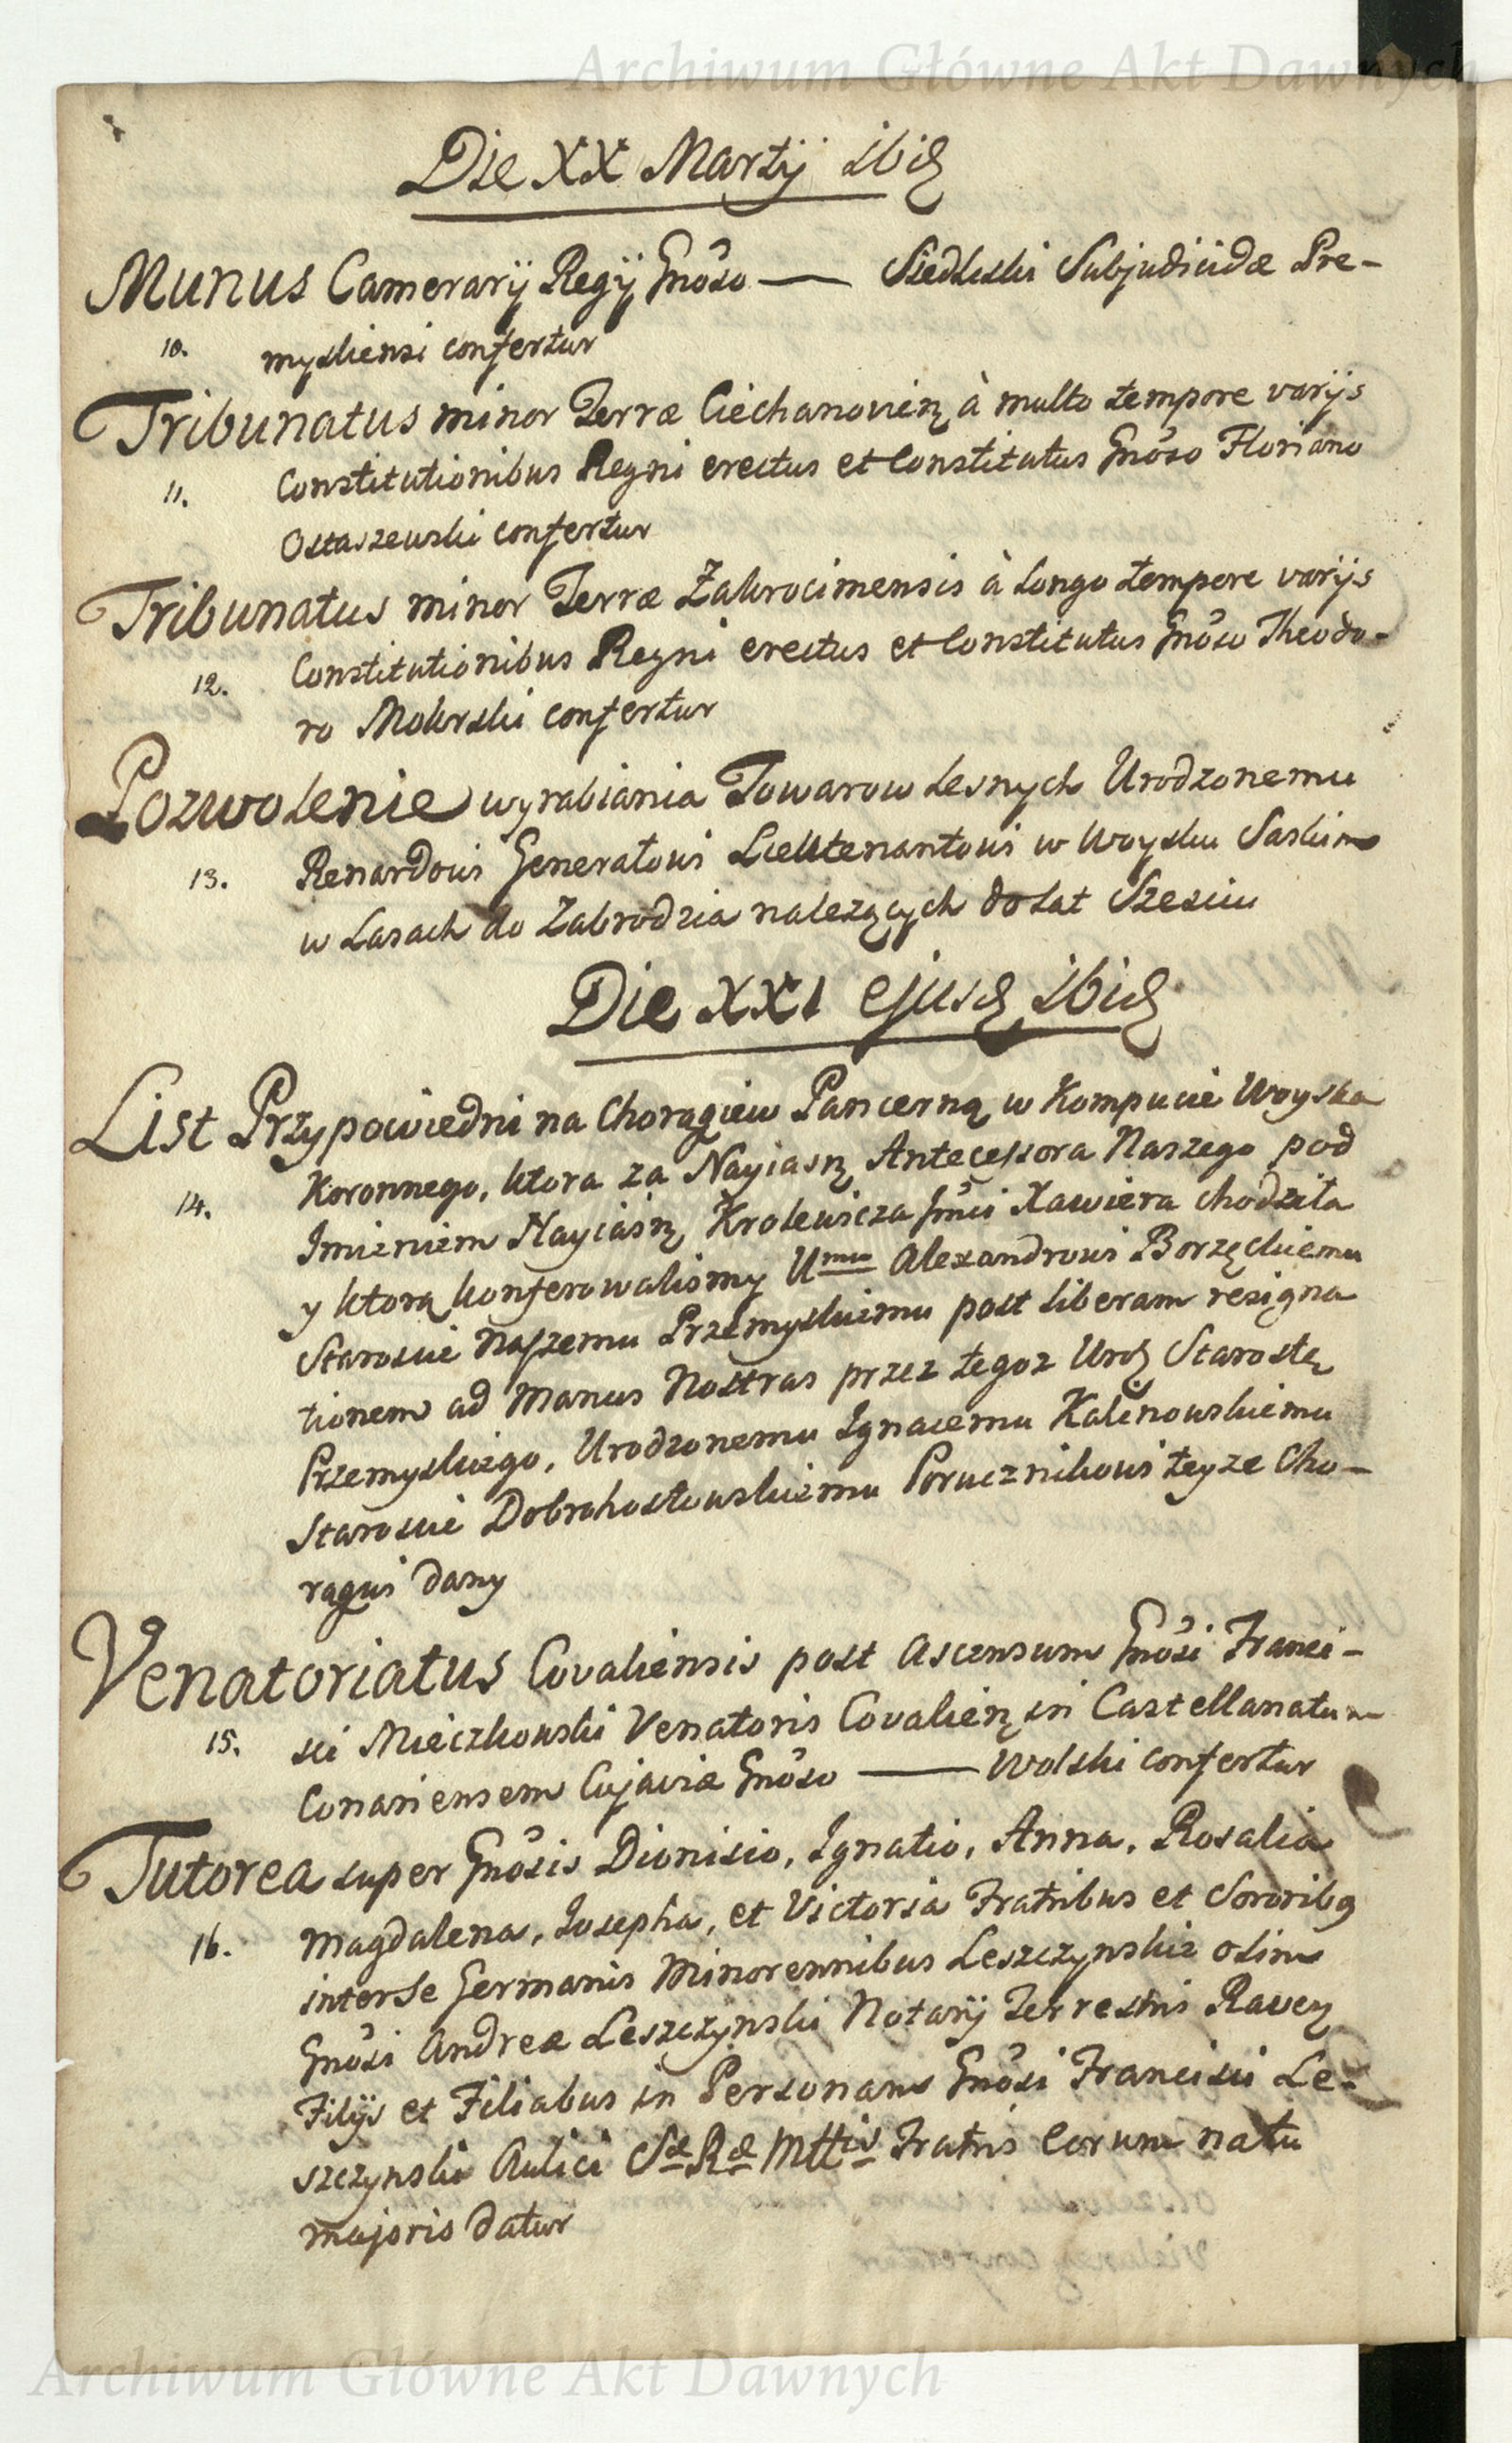 Archiwum Główne Akt Dawnych
Die XX Martij ibid
Munus Camerarij Regij Gnoso — Siedleski Subjudicidæ Pre-
10. mysliensi confertur
Tribunatus minor Terræ Ciechanovien à multo tempore varijs
11. Constitutionibus Regni erectus et Constitutus Gnoso Floriano
Ostaszewski confertur
Tribunatus minor Terræ Zakrocimensis à longo tempore varijs
12. Constitutionibus Regni erectus et Constitutus Gnoso Theodo-
ro Mokrski confertur
Pozwolenie wyrabiania Towarow Lesnych Urodzonemu
13. Renardowi Generałowi Lieutenantowi w Woysku Saskim
w Lasach do Zabrodzia nalezących do Lat Szesciu
Die XXI ejusd ibid
List Przypowiedni na Chorągiew Pancerną w Kompucie Woyska
14. Koronnego, ktora za Nayiasn Antecessora Naszego pod
Imieniem Nayiasn Krolewicza Jmci Xawiera chodziła
y ktorą konferowalismy Umu Alexandrowi Borzęckiemu
Staroscie Naszemu Przemyskiemu post liberam resigna
tionem ad Manus Nostras przez tegoz Urod Starostę
Przemyskiego, Urodzonemu Ignacemu Kalinowskiemu
Staroscie Dobrohostowskiemu Porucznikowi teyze Cho-
rągwi dany
Venatoriatus Covaliensis post ascensum Gnosi Franci-
15. sci Mieczkowski Venatoris Covalien in Castellanatum
Conariensem Cujaviæ Gnoso — Wolski confertur
Tutorea super Gnosis Dionisio, Ignatio, Anna, Rosalia
16. Magdalena, Josepha, et Victoria Fratribus et Sororibg
inter se Germanis Minorennibus Leszczynskie olim
Gnosi Andreæ Leszczynski Notarij Terrestris Raven
Filijs et Filiabus in Personam Gnosi Francisci Le-
szczynski Aulici Sæ Ræ Mttis Fratris Eorum natu
majoris datur
Archiwum Główne Akt Dawnych